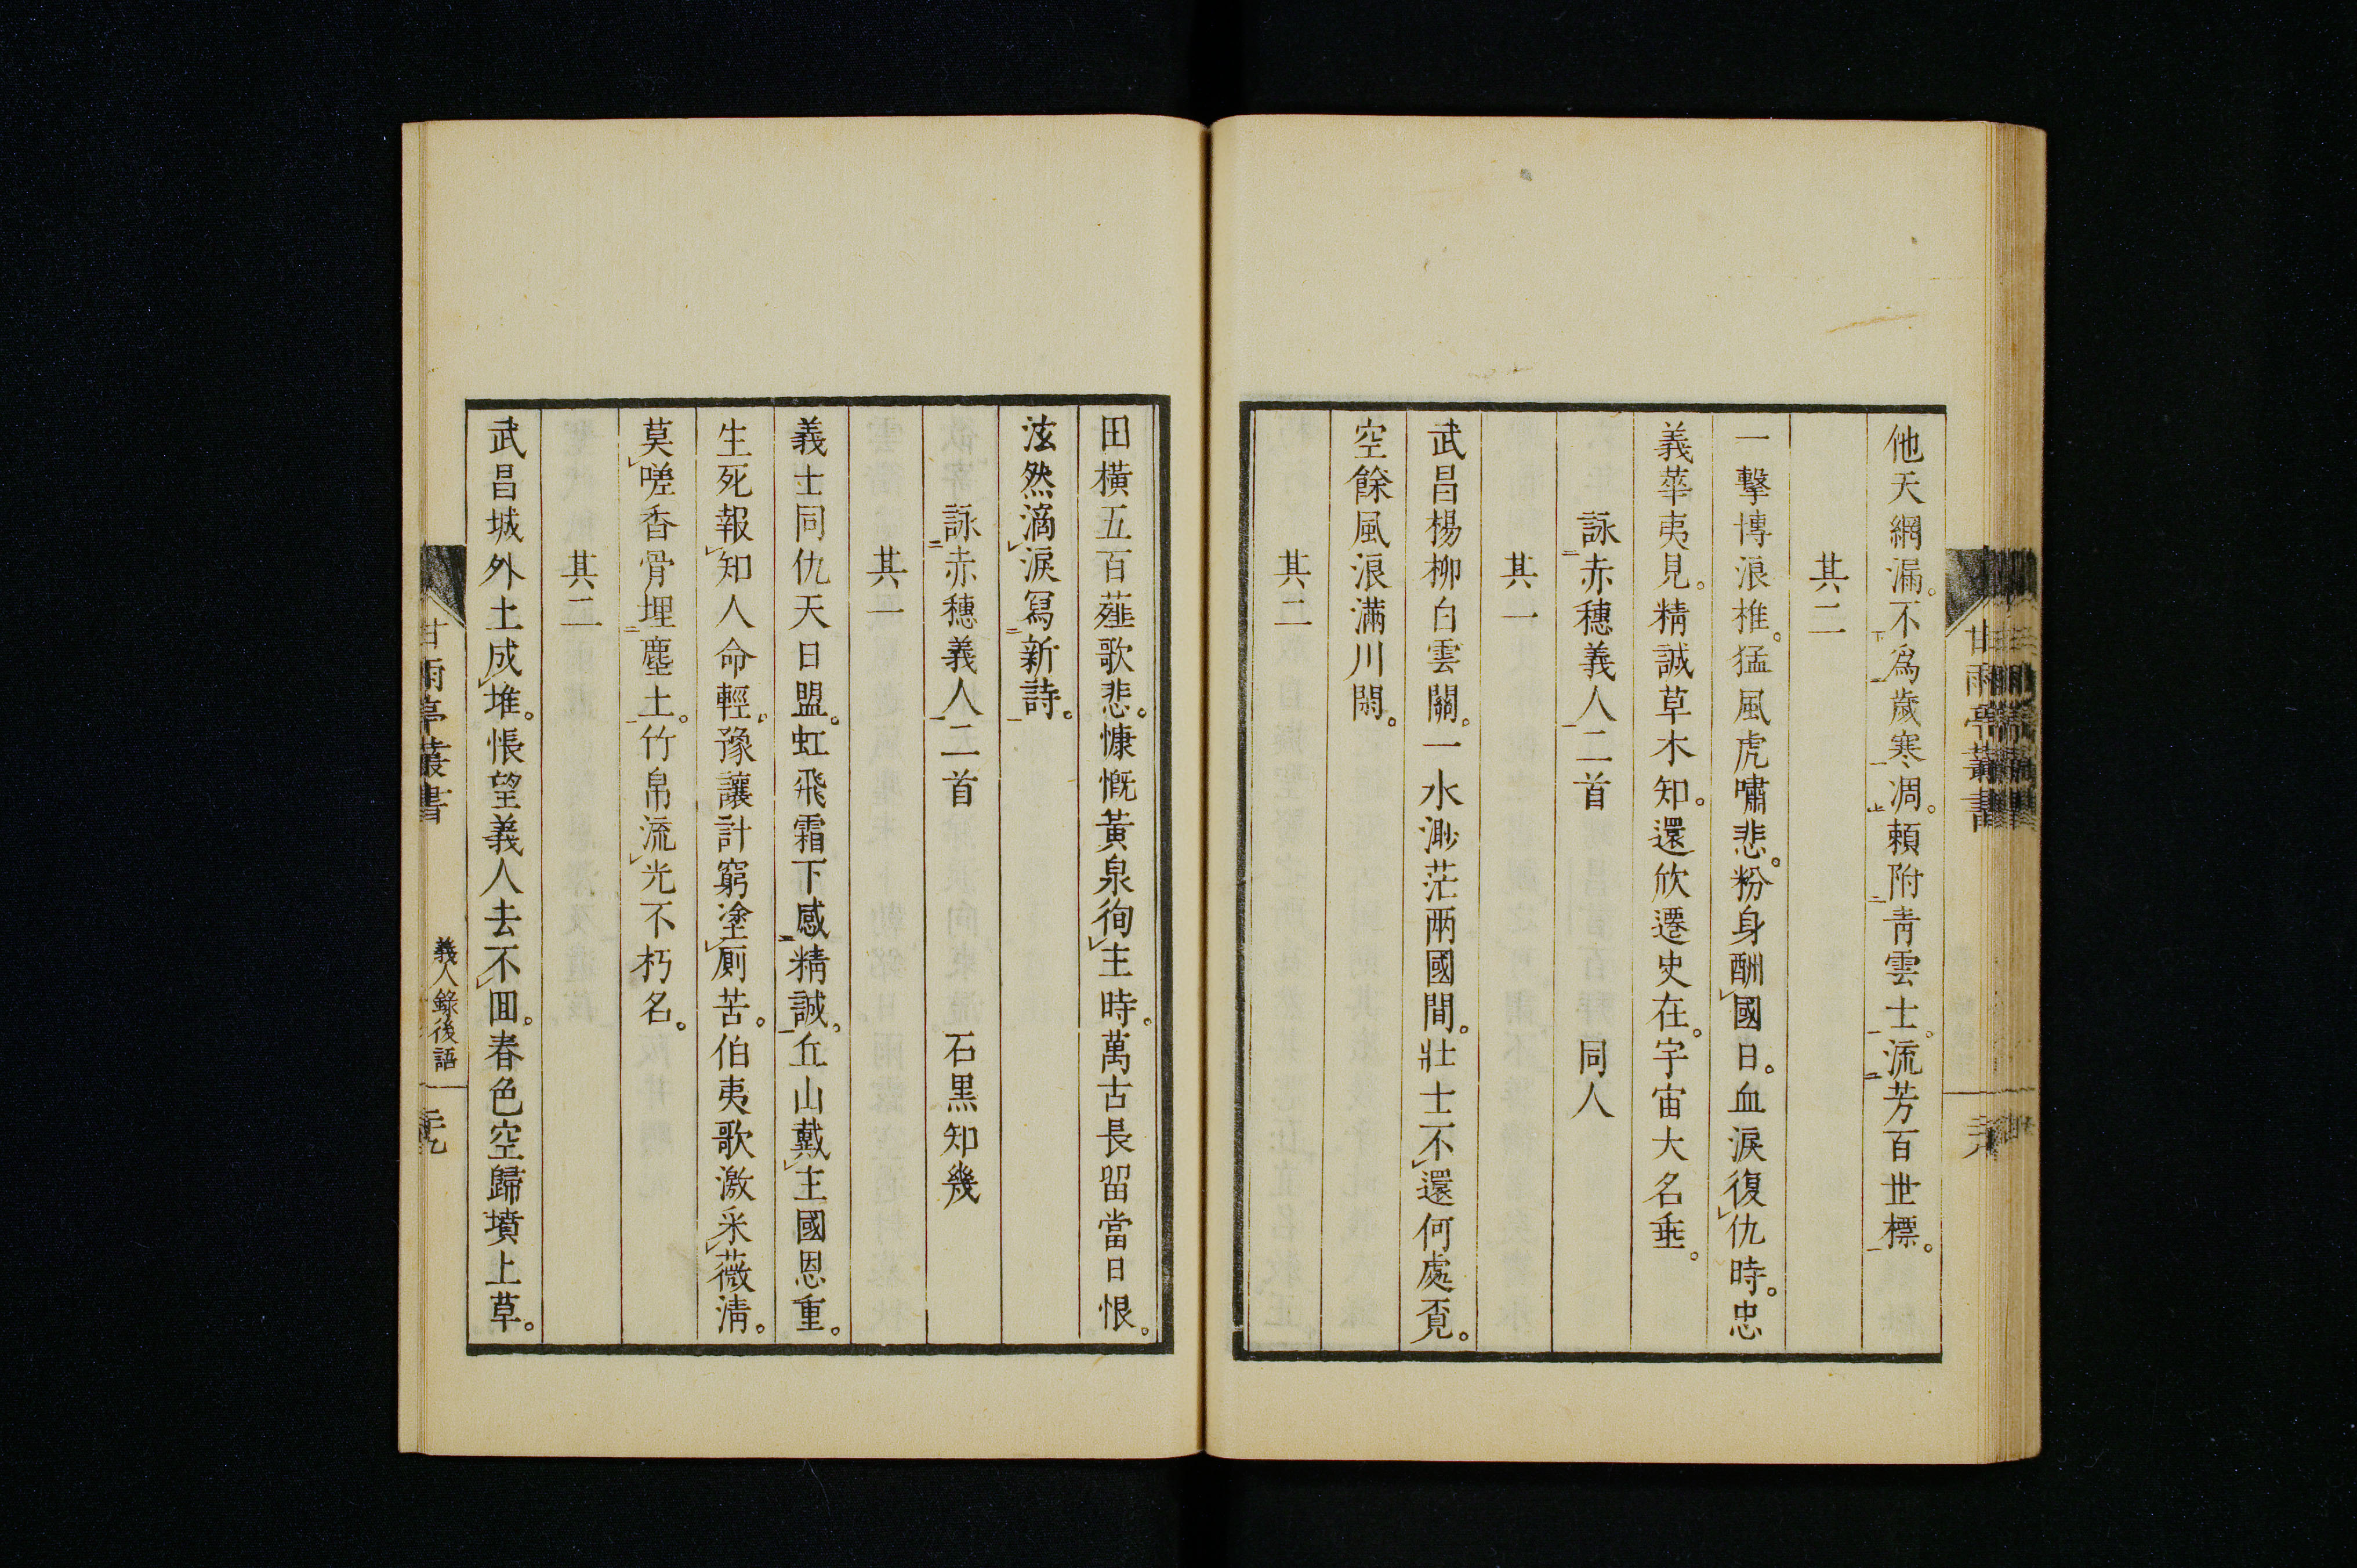 他天網漏。不爲歲寒凋。頼附青雲士。流芳百世標。
其二
一擊博浪椎。猛風虎嘯悲。粉身酬國日。血淚復仇時。忠
義華夷見。精誠草木知。還欣遷史在。宇宙大名垂。
詠赤穗義人二首 同人
其一
武昌楊柳白雲關。一水渺茫兩國間。壯士不還何處覓。
空餘風浪滿川閑。
其二
田橫五百薤歌悲。慷慨黃泉徇主時。萬古長留當日恨。
泫然滴淚寫新詩。
詠赤穗義人二首 石黒知幾
其一
義士同仇天日盟。虹飛霜下感精誠。丘山戴主國恩重。
生死報知人命輕。豫讓計窮塗厠苦。伯夷歌激采薇淸。
莫嗟香骨埋塵土。竹帛流光不朽名。
其二
武昌城外土成堆。悵望義人去不回。春色空歸墳上草。
甘雨亭叢書
義人錄後語